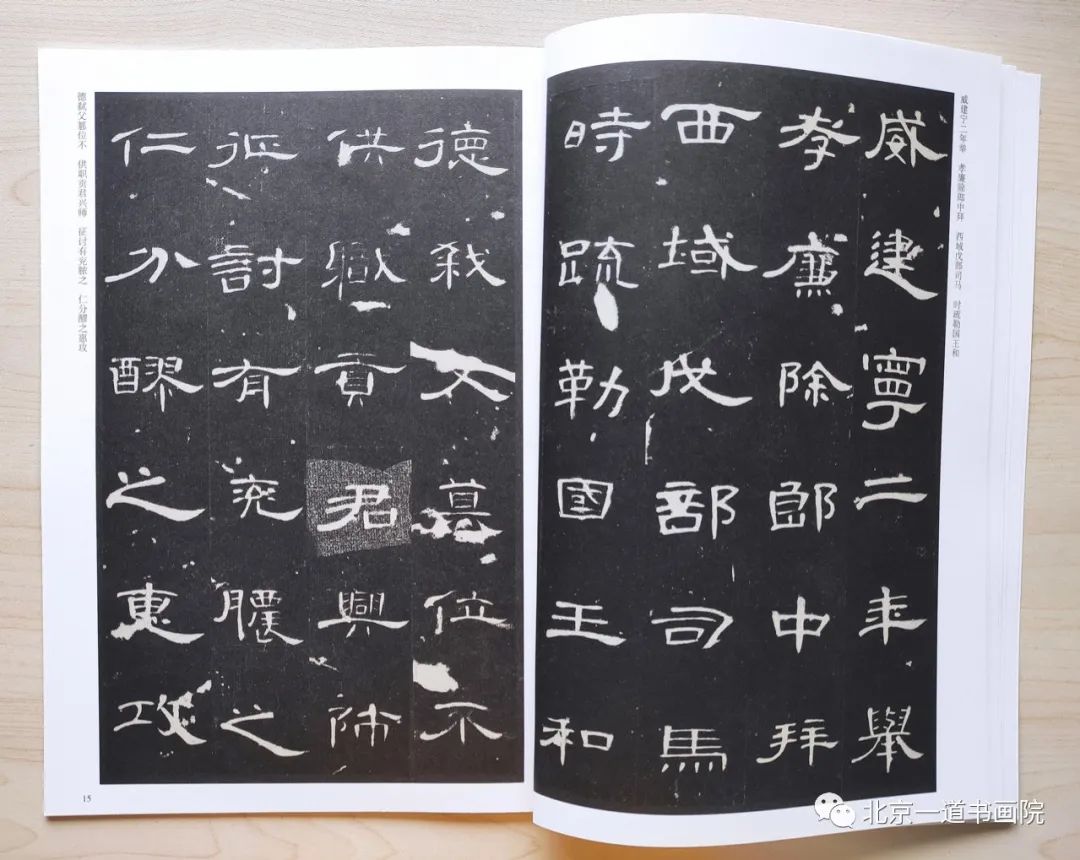 威建寧二年舉
孝廉除郎中拜
西域戊部司馬
時疏勒國王和
德弒父篡位不
供職貢君興師
征討有兗膿之
仁分醪之惠攻
威建宁二年举 孝廉除郎中拜 西域戊部司马 时疏勒国王和
德弑父篡位不 供职贡君兴师 征讨有兖脓之 仁分醪之惠攻
15
北京一道书画院